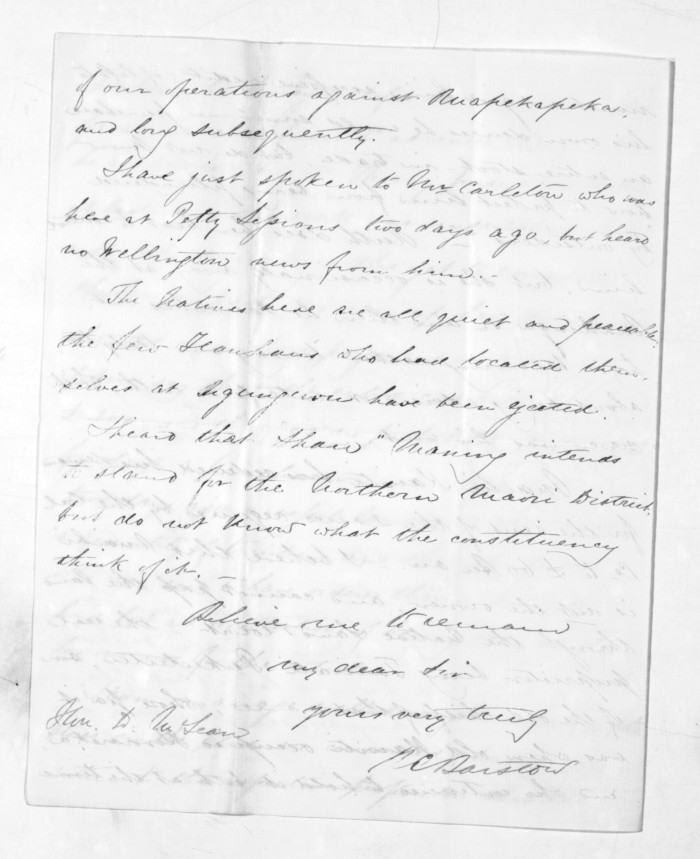 of our operations against Ruapekapeka,
and long subsequently.
I have just spoken to Mr Carleton who was
here at Petty Sessions two days ago, but heard
no Wellington news from him. —
The Natives here are all quiet and peaceable.
the few Hauhaus who had located them-
selves at have been ejected.
I heard that "Maning intends
to stand for the Northern Maori District,
but do not know what the constituency
think of it. —
Believe me to remain
my dear Sir
yours very truly
R C Barstow
Hon. D. McLean